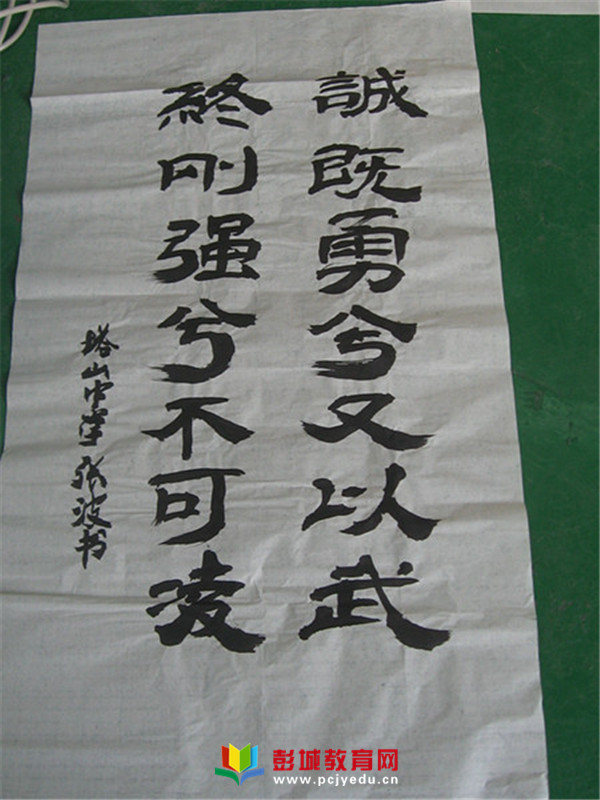 誠既勇兮又以武
終刚强兮不可凌
塔山中学张波书
彭城教育网
www.pcjyedu.cn